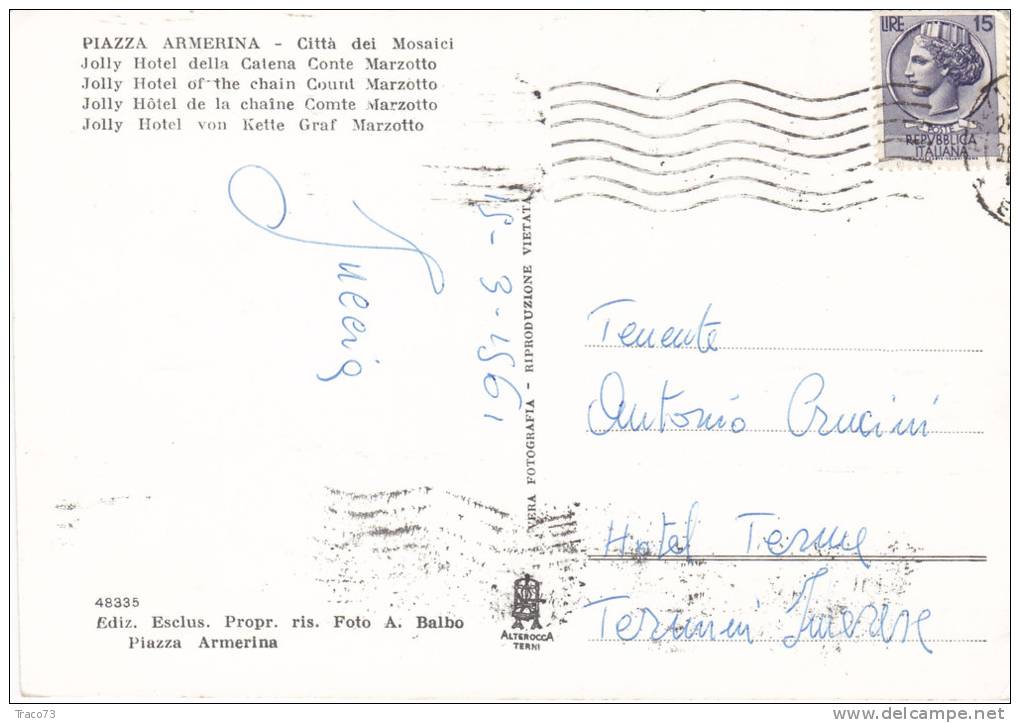 PIAZZA ARMERINA - Città dei Mosaici
Jolly Hotel della Catena Conte Marzotto
Jolly Hotel of the chain Count Marzotto
Jolly Hôtel de la chaîne Comte Marzotto
Jolly Hotel von Kette Graf Marzotto
LIRE 15
POSTE
REPVBBLICA
ITALIANA
15-3-1961
VERA FOTOGRAFIA - RIPRODUZIONE VIETATA
Tenente
Antonio Crucini
Hotel Terme
Termini Imerese
48335
Ediz. Esclus. Propr. ris. Foto A. Balbo
Piazza Armerina
ALTEROCCA
TERNI
Traco73
http://www.delcampe.net